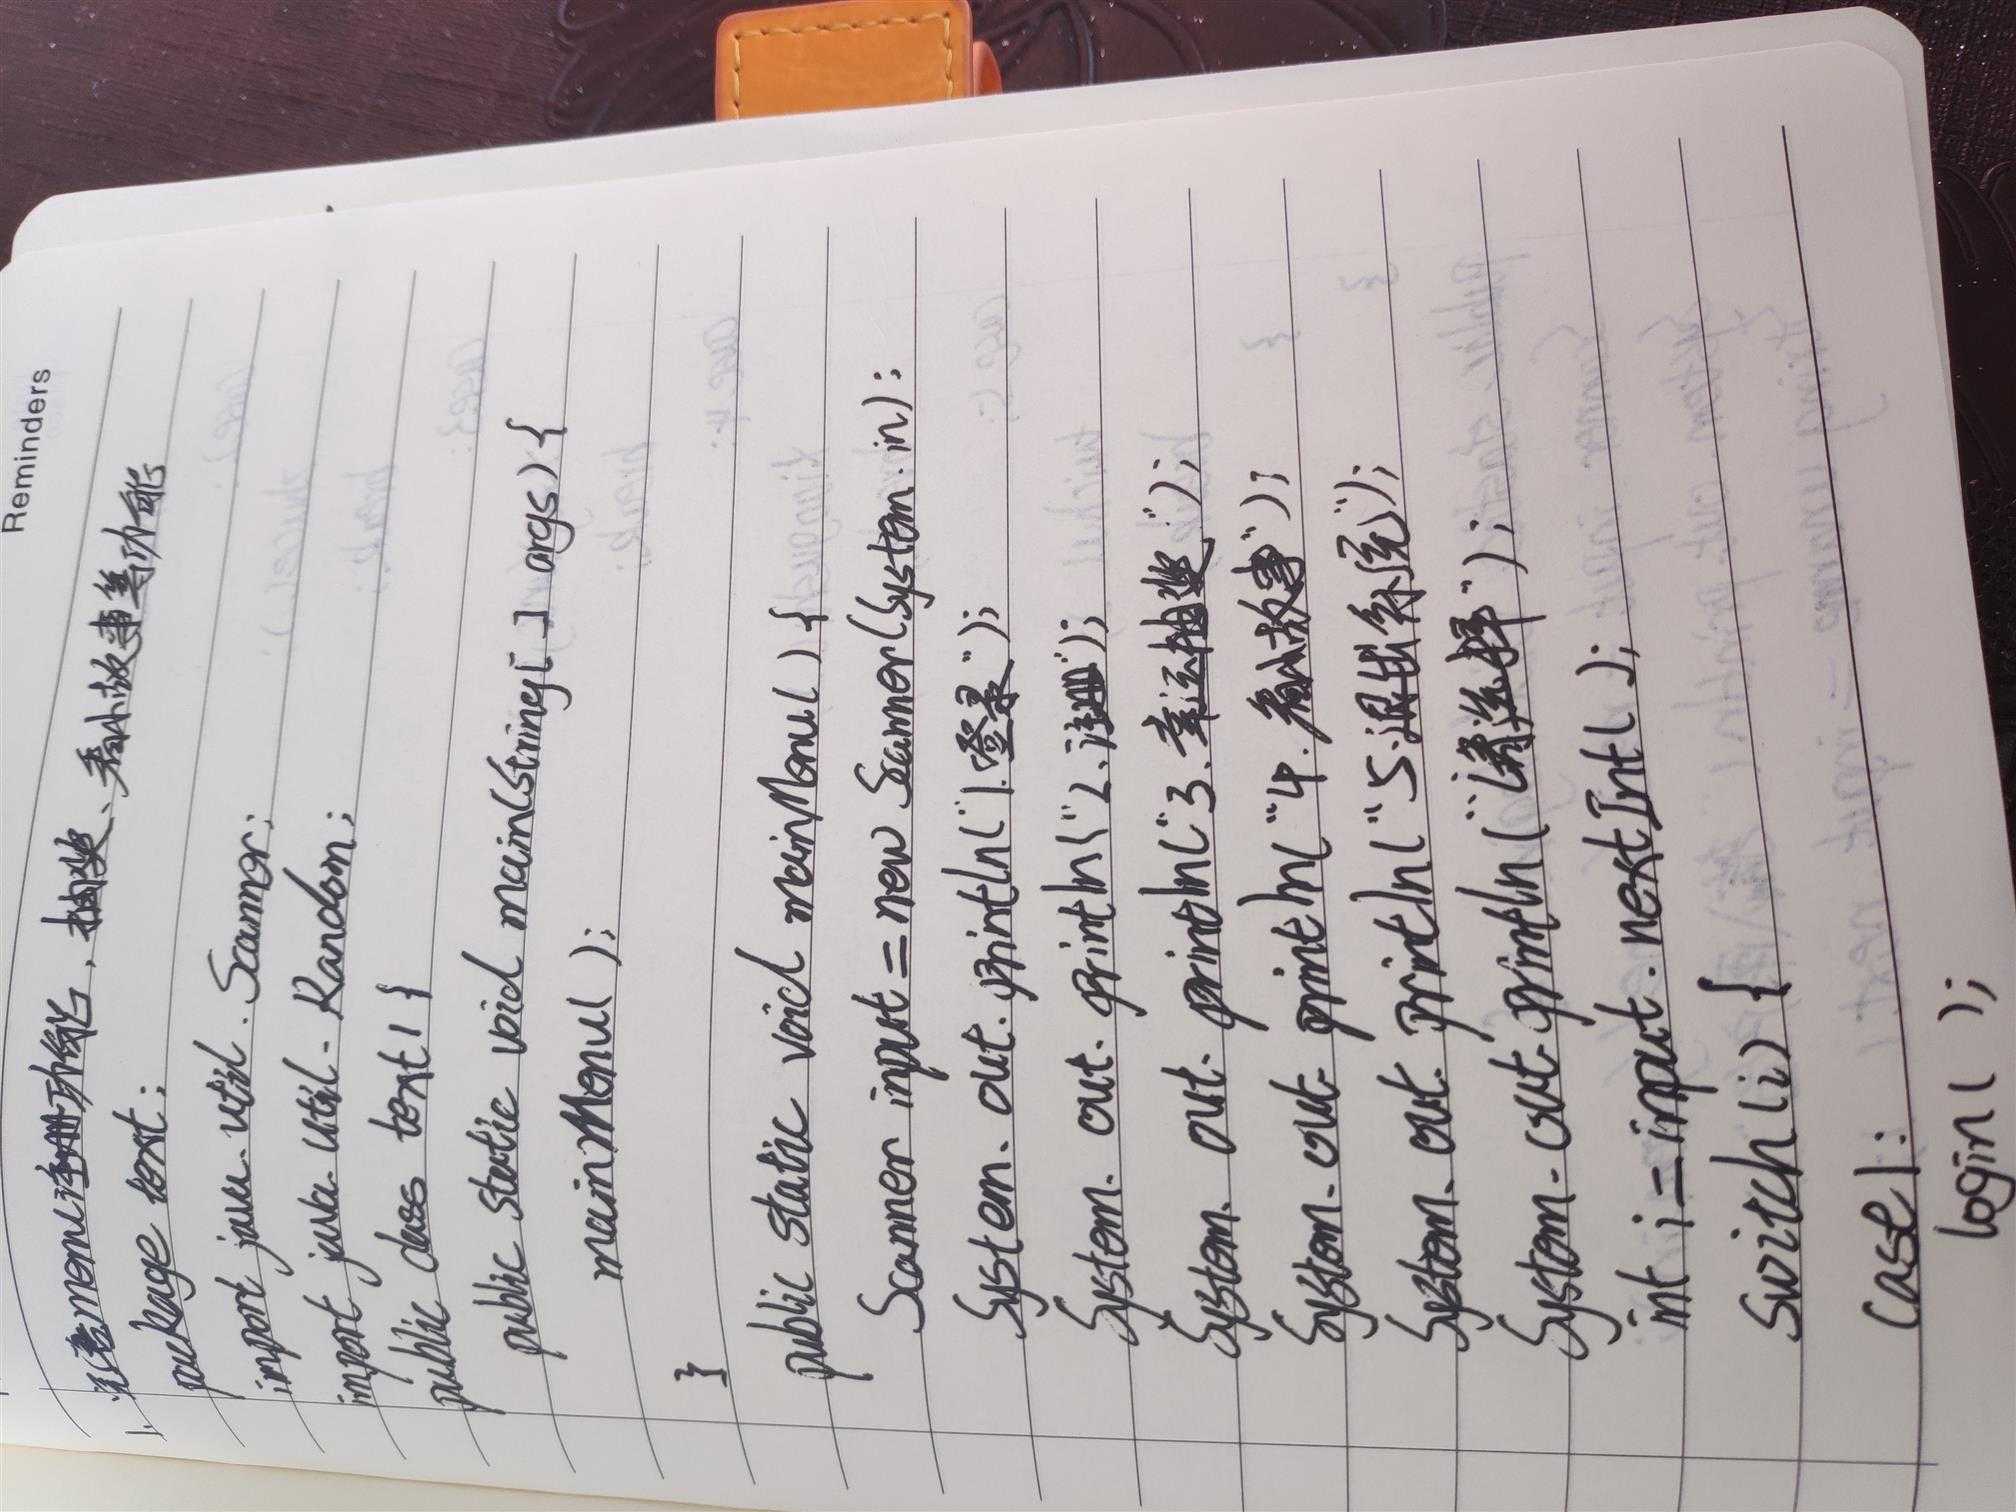 Reminders
1. 完善menu注册功能、抽奖、看小故事等功能
package text;
import java.util.Scanner;
import java.util.Random;
public class text1 {
public static void main(String[] args) {
mainMenu();
}
public static void mainMenu() {
Scanner input = new Scanner(System.in);
System.out.println("1.登录");
System.out.println("2.注册");
System.out.println("3.幸运抽奖");
System.out.println("4.看小故事");
System.out.println("5.退出系统");
System.out.println("请选择");
int i = input.nextInt();
switch(i) {
case1:
login();